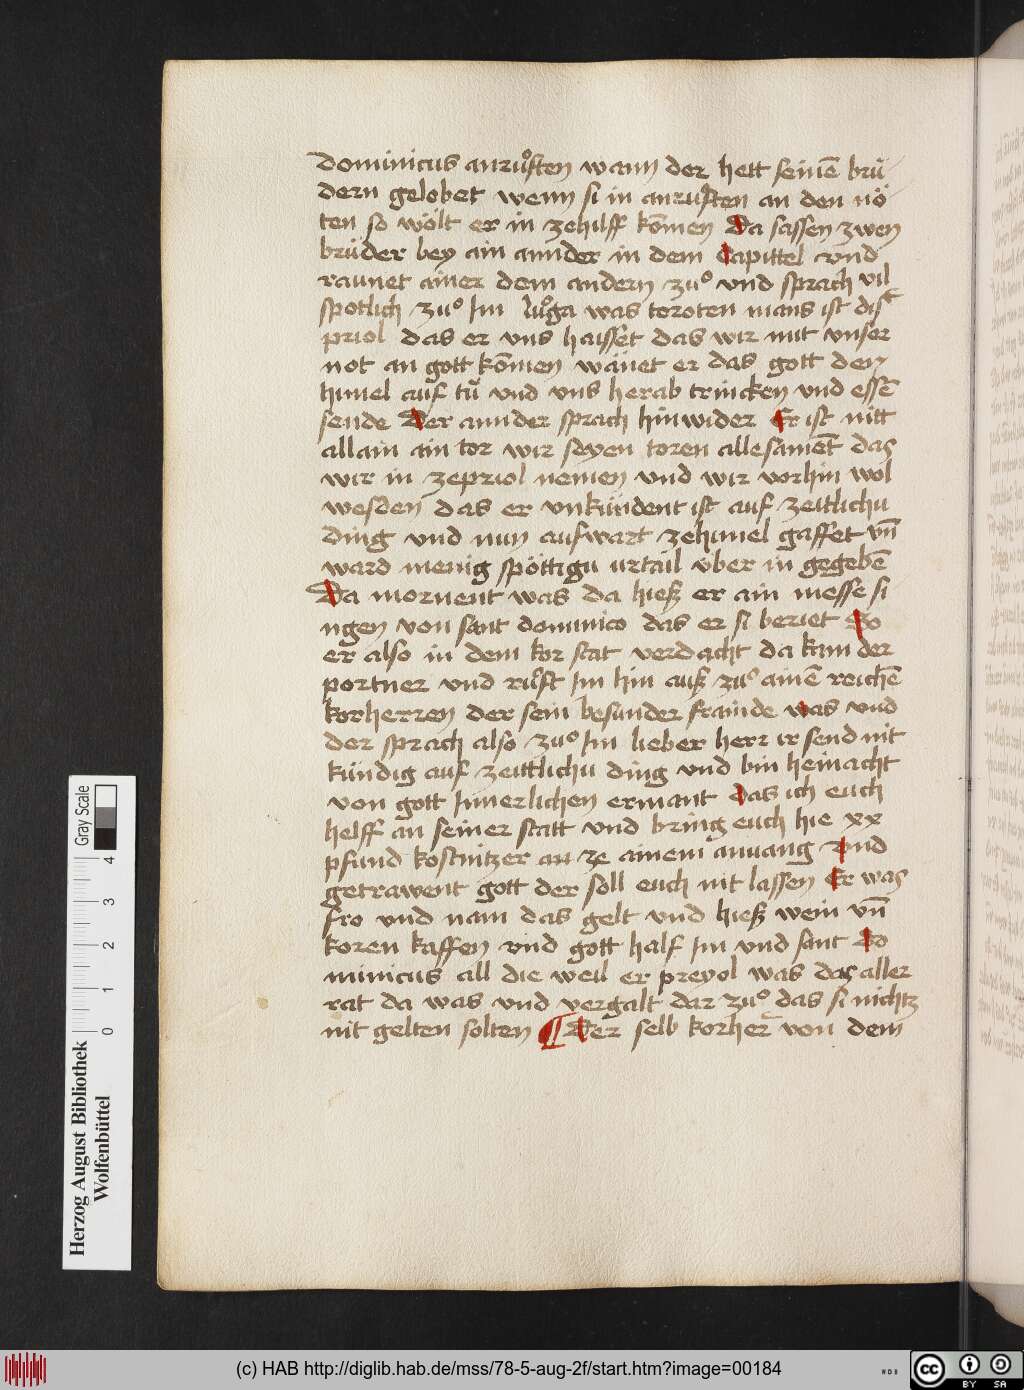 dominicus anruͦften wann der hett seinē brū
dern gelobet wenn si in anruften an den nö
ten so wölt er in zehilff kōmen Da sassen zwen
brüder bey ain annder in dem Capittel vnd
raunet ainer dem andern zuͦ vnd sprach vil
spotlich zuͦ Im luͦga was toroten mans ist
priol das er vns haisset das wir mit vnser
not an gott kōmen wänet er das gott den
himel auf tuͦ vnd vns herab trincken vnd essē
sende Der annder sprach hinwider Er ist nitt
allain ain tor wir seyen toren allesamēt das
wir in zepriol nemen vnd wir vorhin wol
westen das er vnkündent ist auf zeitlichu
ding vnd nun aufwart zehimel gaffet vn̄
ward menig spöttigu urtail vber in gegebē
Da mornent was da hieß er ain messe si
ngen von sant dominico das er si beriet Do
er also in dem kor stat verdacht da kam der
portner vnd ruͦft Im hin auß zuͦ ainē reichē
korherren der sein besunder frainde was vnd
der sprach also zuͦ Im lieber herr ir send nit
kündig auf zeittlichu ding vnd bin heinacht
von gott Innerlichen ermant das ich euch
helff an seiner statt vnd bring euch hie xx
pfund kostnitzer an ze ainem anuang vnd
getrawent gott der soll euch nit lassen Er was
fro vnd nam das gelt vnd hieß wein vn̄
koren kaffen vnd gott half Im vnd sant Do
minicus all die weil er preyol was das aller
rat da was vnd vergalt dar zuͦ das si nichtz
nit gelten solten ¶ Der selb korher von dem
Gray Scale
4
3
2
1
0
Herzog August Bibliothek
Wolfenbüttel
(c) HAB http://diglib.hab.de/mss/78-5-aug-2f/start.htm?image=00184
cc BY SA